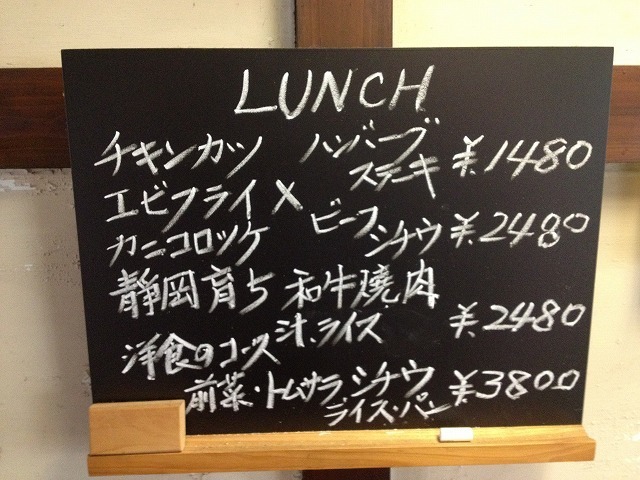 LUNCH
チキンカツ ハンバーグ
ステーキ ¥.1480
エビフライ X
カニコロッケ ビーフ
シチウ ¥.2480
静岡育ち 和牛焼肉
汁.ライス ¥.2480
洋食のコース
前菜・トムサラ シチウ ¥3800
ライス・パン